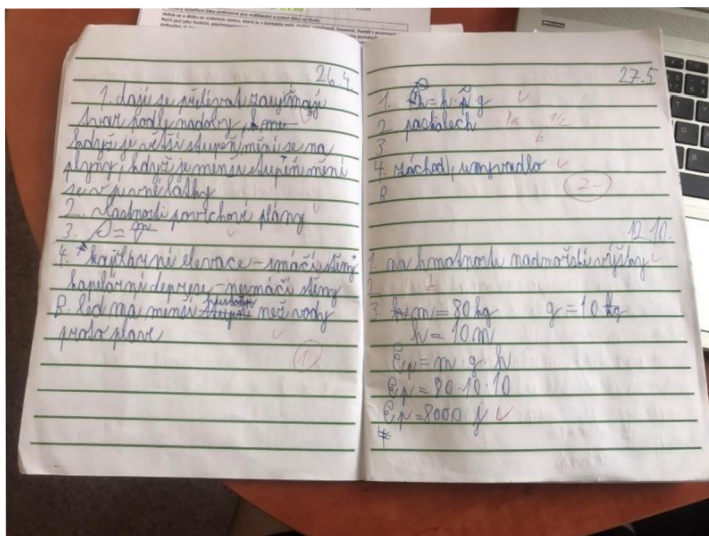 26.4.
1. dají se přelévat zaujímají
tvar podle nadoby,
když je větší stupeň mění se na
plyny, když je menší stupeň mění
se v pevné látky
2. vlastnosti povrchové plány
3.
4. kapilární elevace - smáčí stěny
kapilární deprese - nesmáčí stěny
B. led má menší než vody
proto plave
1
27.5
1. = h · g
2. paskalech
3.
4. záchod, umyvadlo
B.
2-
12.10.
1. na hmotnosti nadmořské výšky
2.
3. m = 80 kg g = 10
h = 10 m
Ep = m · g · h
Ep = 80 · 10 · 10
Ep = 8000 j